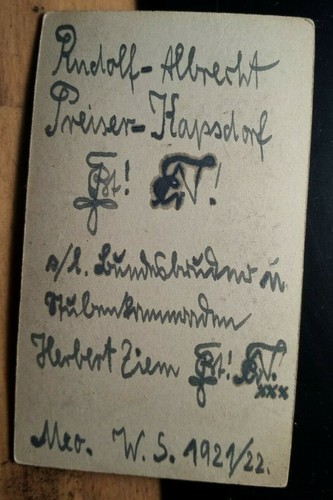 Rudolf-Albrecht
Preiser-Kapsdorf
s/l. Bundesbruder u.
Stubenkameraden
Herbert Ziem
W. S. 1921/22.